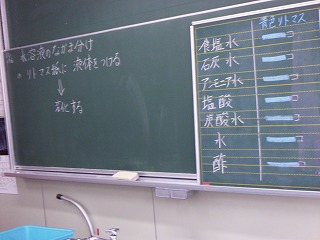 水溶液のなかま分け
リトマス紙に液体をつける
⇓
変化する
青色リトマス
食塩水
石灰水
アンモニア水
塩酸
炭酸水
水
酢